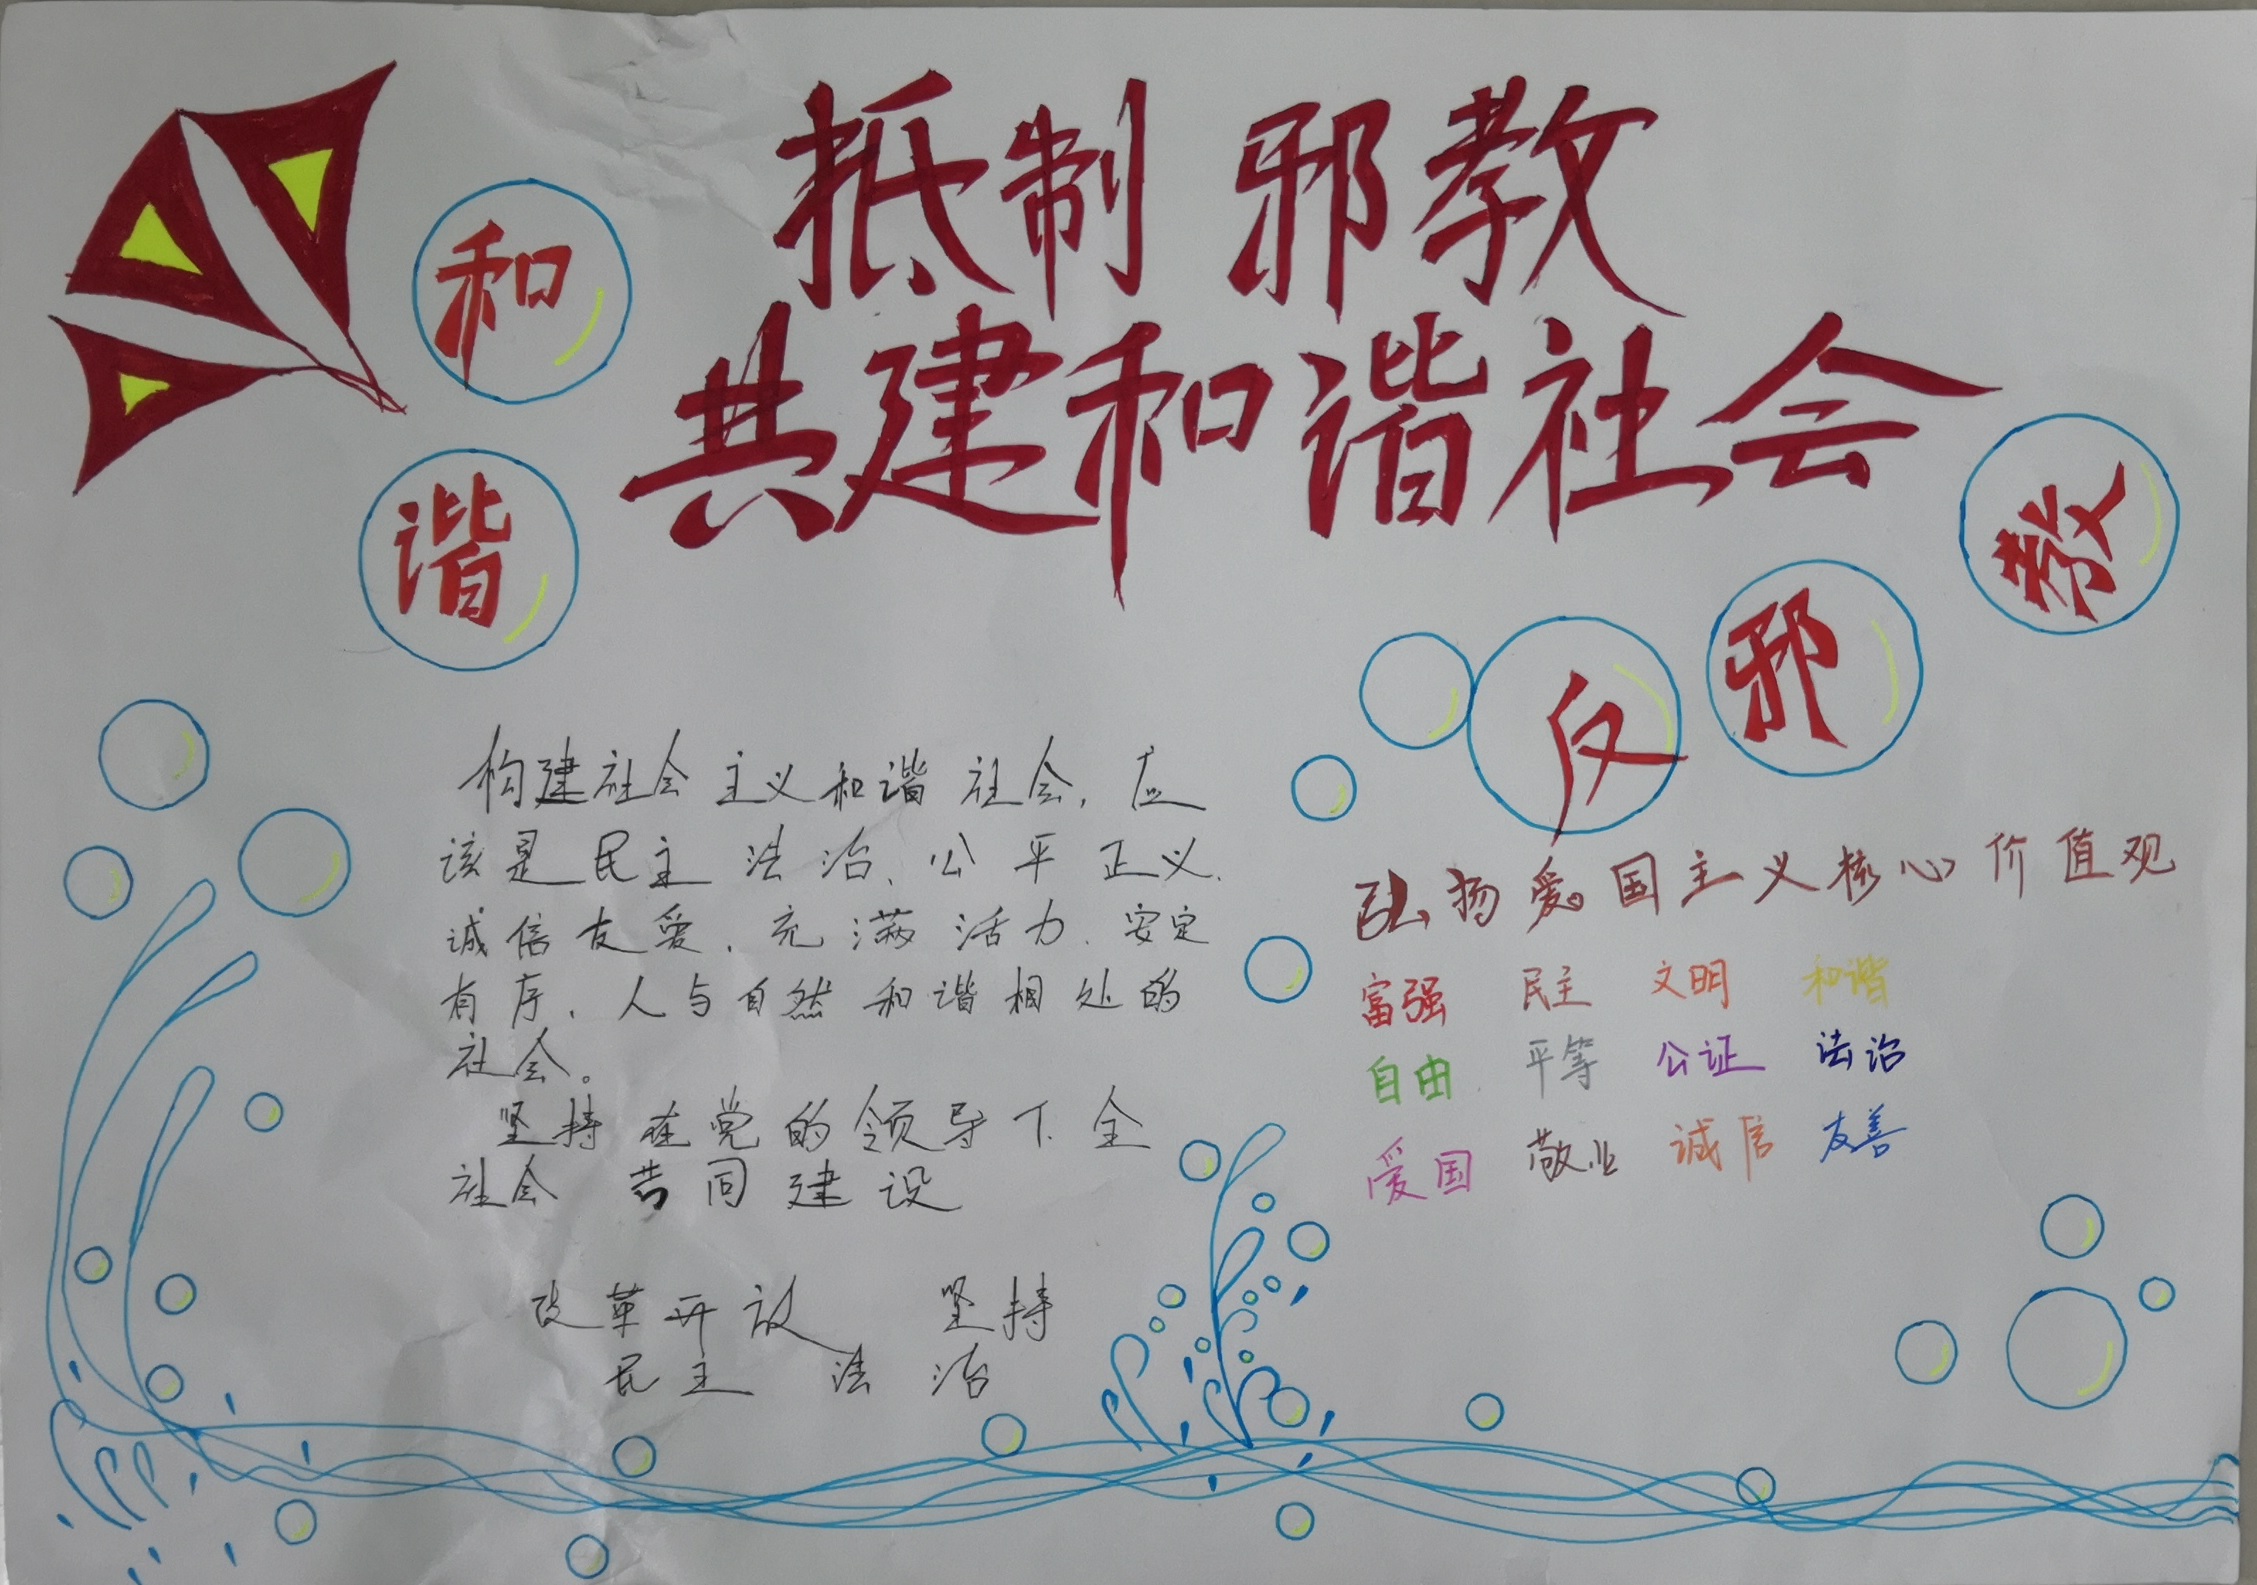 抵制邪教
共建和谐社会
和
谐
反
邪
教
构建社会主义和谐社会，应
该是民主法治、公平正义、
诚信友爱、充满活力、安定
有序、人与自然和谐相处的
社会。
坚持在党的领导下全
社会共同建设
改革开放 坚持
民主法治
弘扬爱国主义核心价值观
富强 民主 文明 和谐
自由 平等 公证 法治
爱国 敬业 诚信 友善